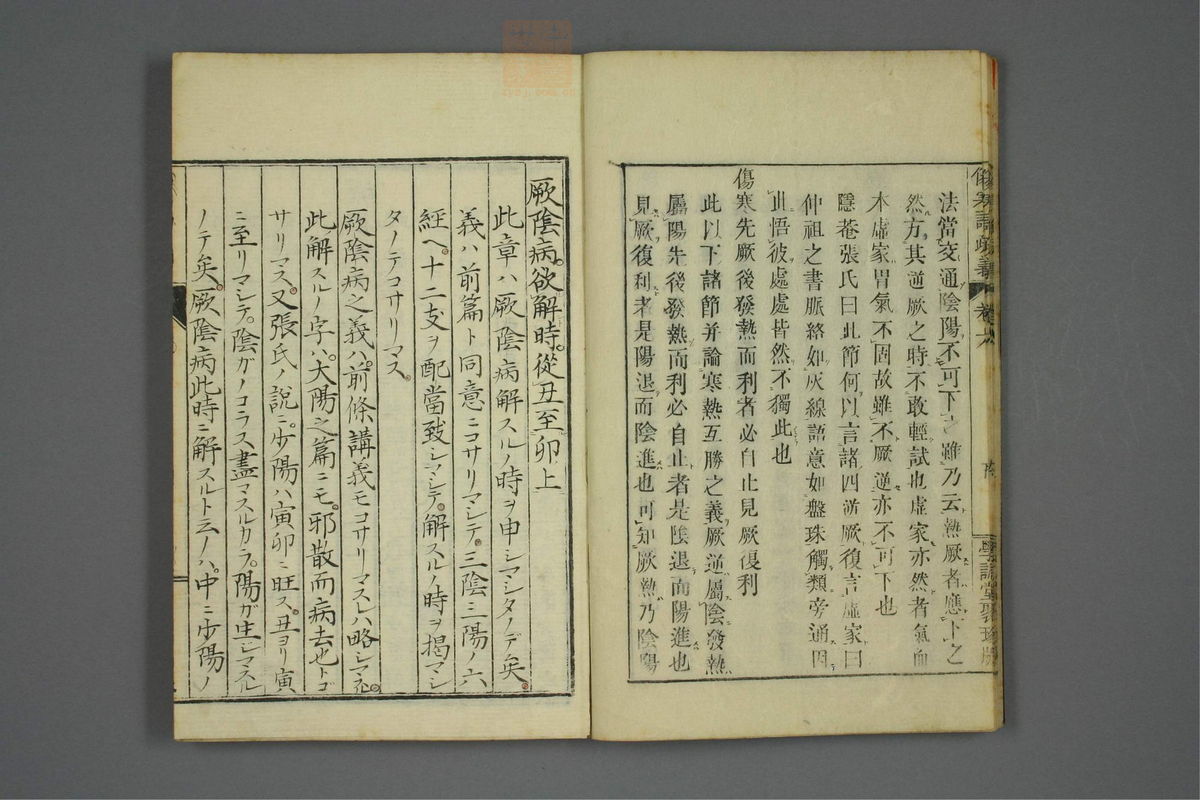 法當交通陰陽不可下之雖乃云熱厥者應下之
然方其逆厥之時不敢輕試也虛家亦然者氣血
本虛家胃氣不固故雖不厥逆亦不可下也
隱菴張氏曰此節何以言諸四逆厥復言虛家曰
仲祖之書脈絡如灰線語意如盤珠觸類旁通因
此悟彼處處皆然不獨此也
傷寒先厥後發熱而利者必自止見厥復利
此以下諸節并論寒熱互勝之義厥逆屬陰發熱
屬陽先後發熱而利必自止者是陰退而陽進也
見厥復利者是陽退而陰進也可知厥熱乃陰陽
厥陰病。欲解時。從丑至卯上
此章ハ厥陰病解スルノ時ヲ申シマシタノデ矣。
義ハ前篇ト同意ニコサリマシテ。三陰三陽ノ六
經ヘ。十二支ヲ配當致シマシテ。解スルノ時ヲ揭マシ
タノテコサリマス。
厥陰病之義ハ。前條講義モコサリマスレハ略シマス。
此解スルノ字ハ。太陽之篇ニモ。邪散而病去也トゴ
サリマス。又張氏ノ說ニ。少陽ハ寅卯ニ旺ス。丑ヨリ寅
ニ至リマシテ。陰ガノコラス盡マスルカラ。陽ガ生シマスル
ノテ矣。厥陰病此時ニ解スルト云ノハ。中ニ少陽ノ